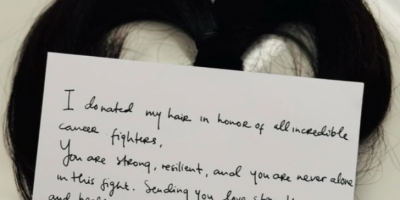 I donated my hair in honor of all incredible
cancer fighters.
You are strong, resilient, and you are never alone
in this fight. Sending you love
and